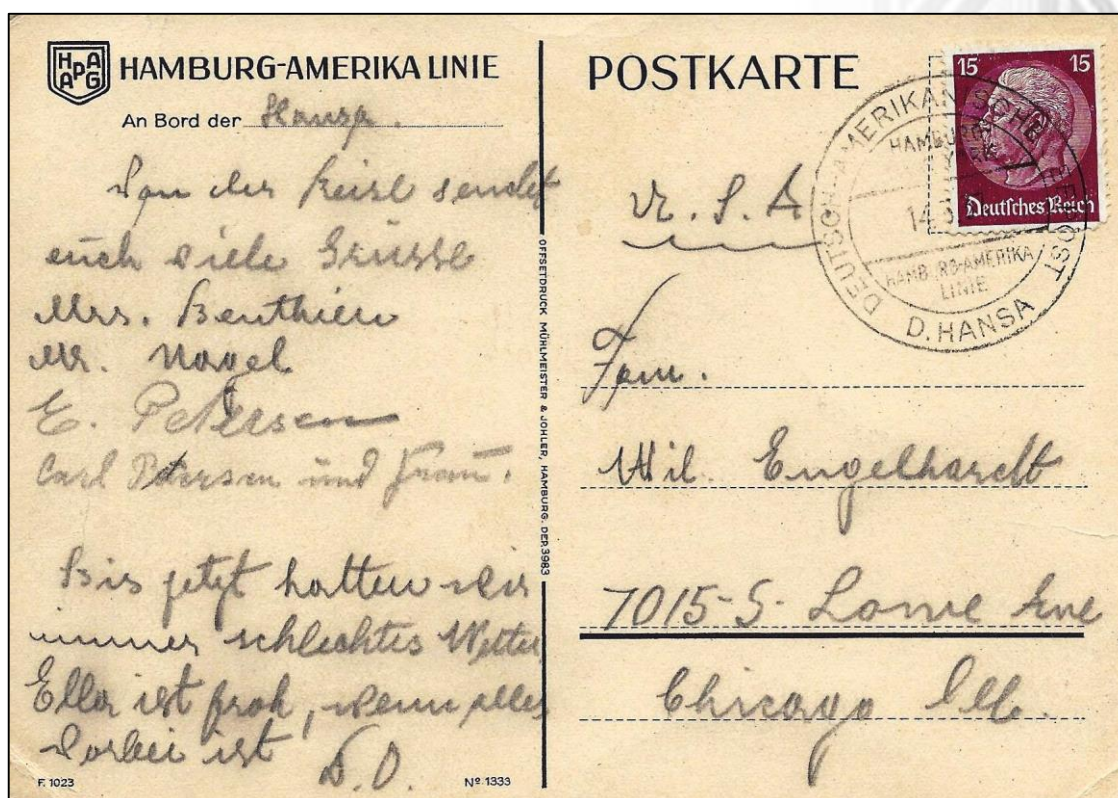 HAPAG HAMBURG-AMERIKA LINIE
An Bord der Hansa.
Von der Reise sendet
euch viele Grüsse
Mrs. Benthien
Mr. Nagel
E. Petersen
Carl Petersen und Frau.
Bis jetzt hatten wir
immer schlechtes Wetter
Ella ist froh, wenn alles
vorbei ist
F. 1023
Nº 1333
OFFSETDRUCK MÜHLMEISTER & JOHLER, HAMBURG. DEP. 3983
POSTKARTE
15 15
Deutsches Reich
DEUTSCH-AMERIKANISCHE SEEPOST
HAMBURG
14
HAMBURG-AMERIKA
LINIE
D. HANSA
U. S. A
Fam.
Wil. Engelhardt
7015-S- Lowe Ave
Chicago Ill.